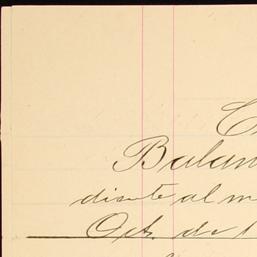 C
Balan
disute al m
Oct. de 1